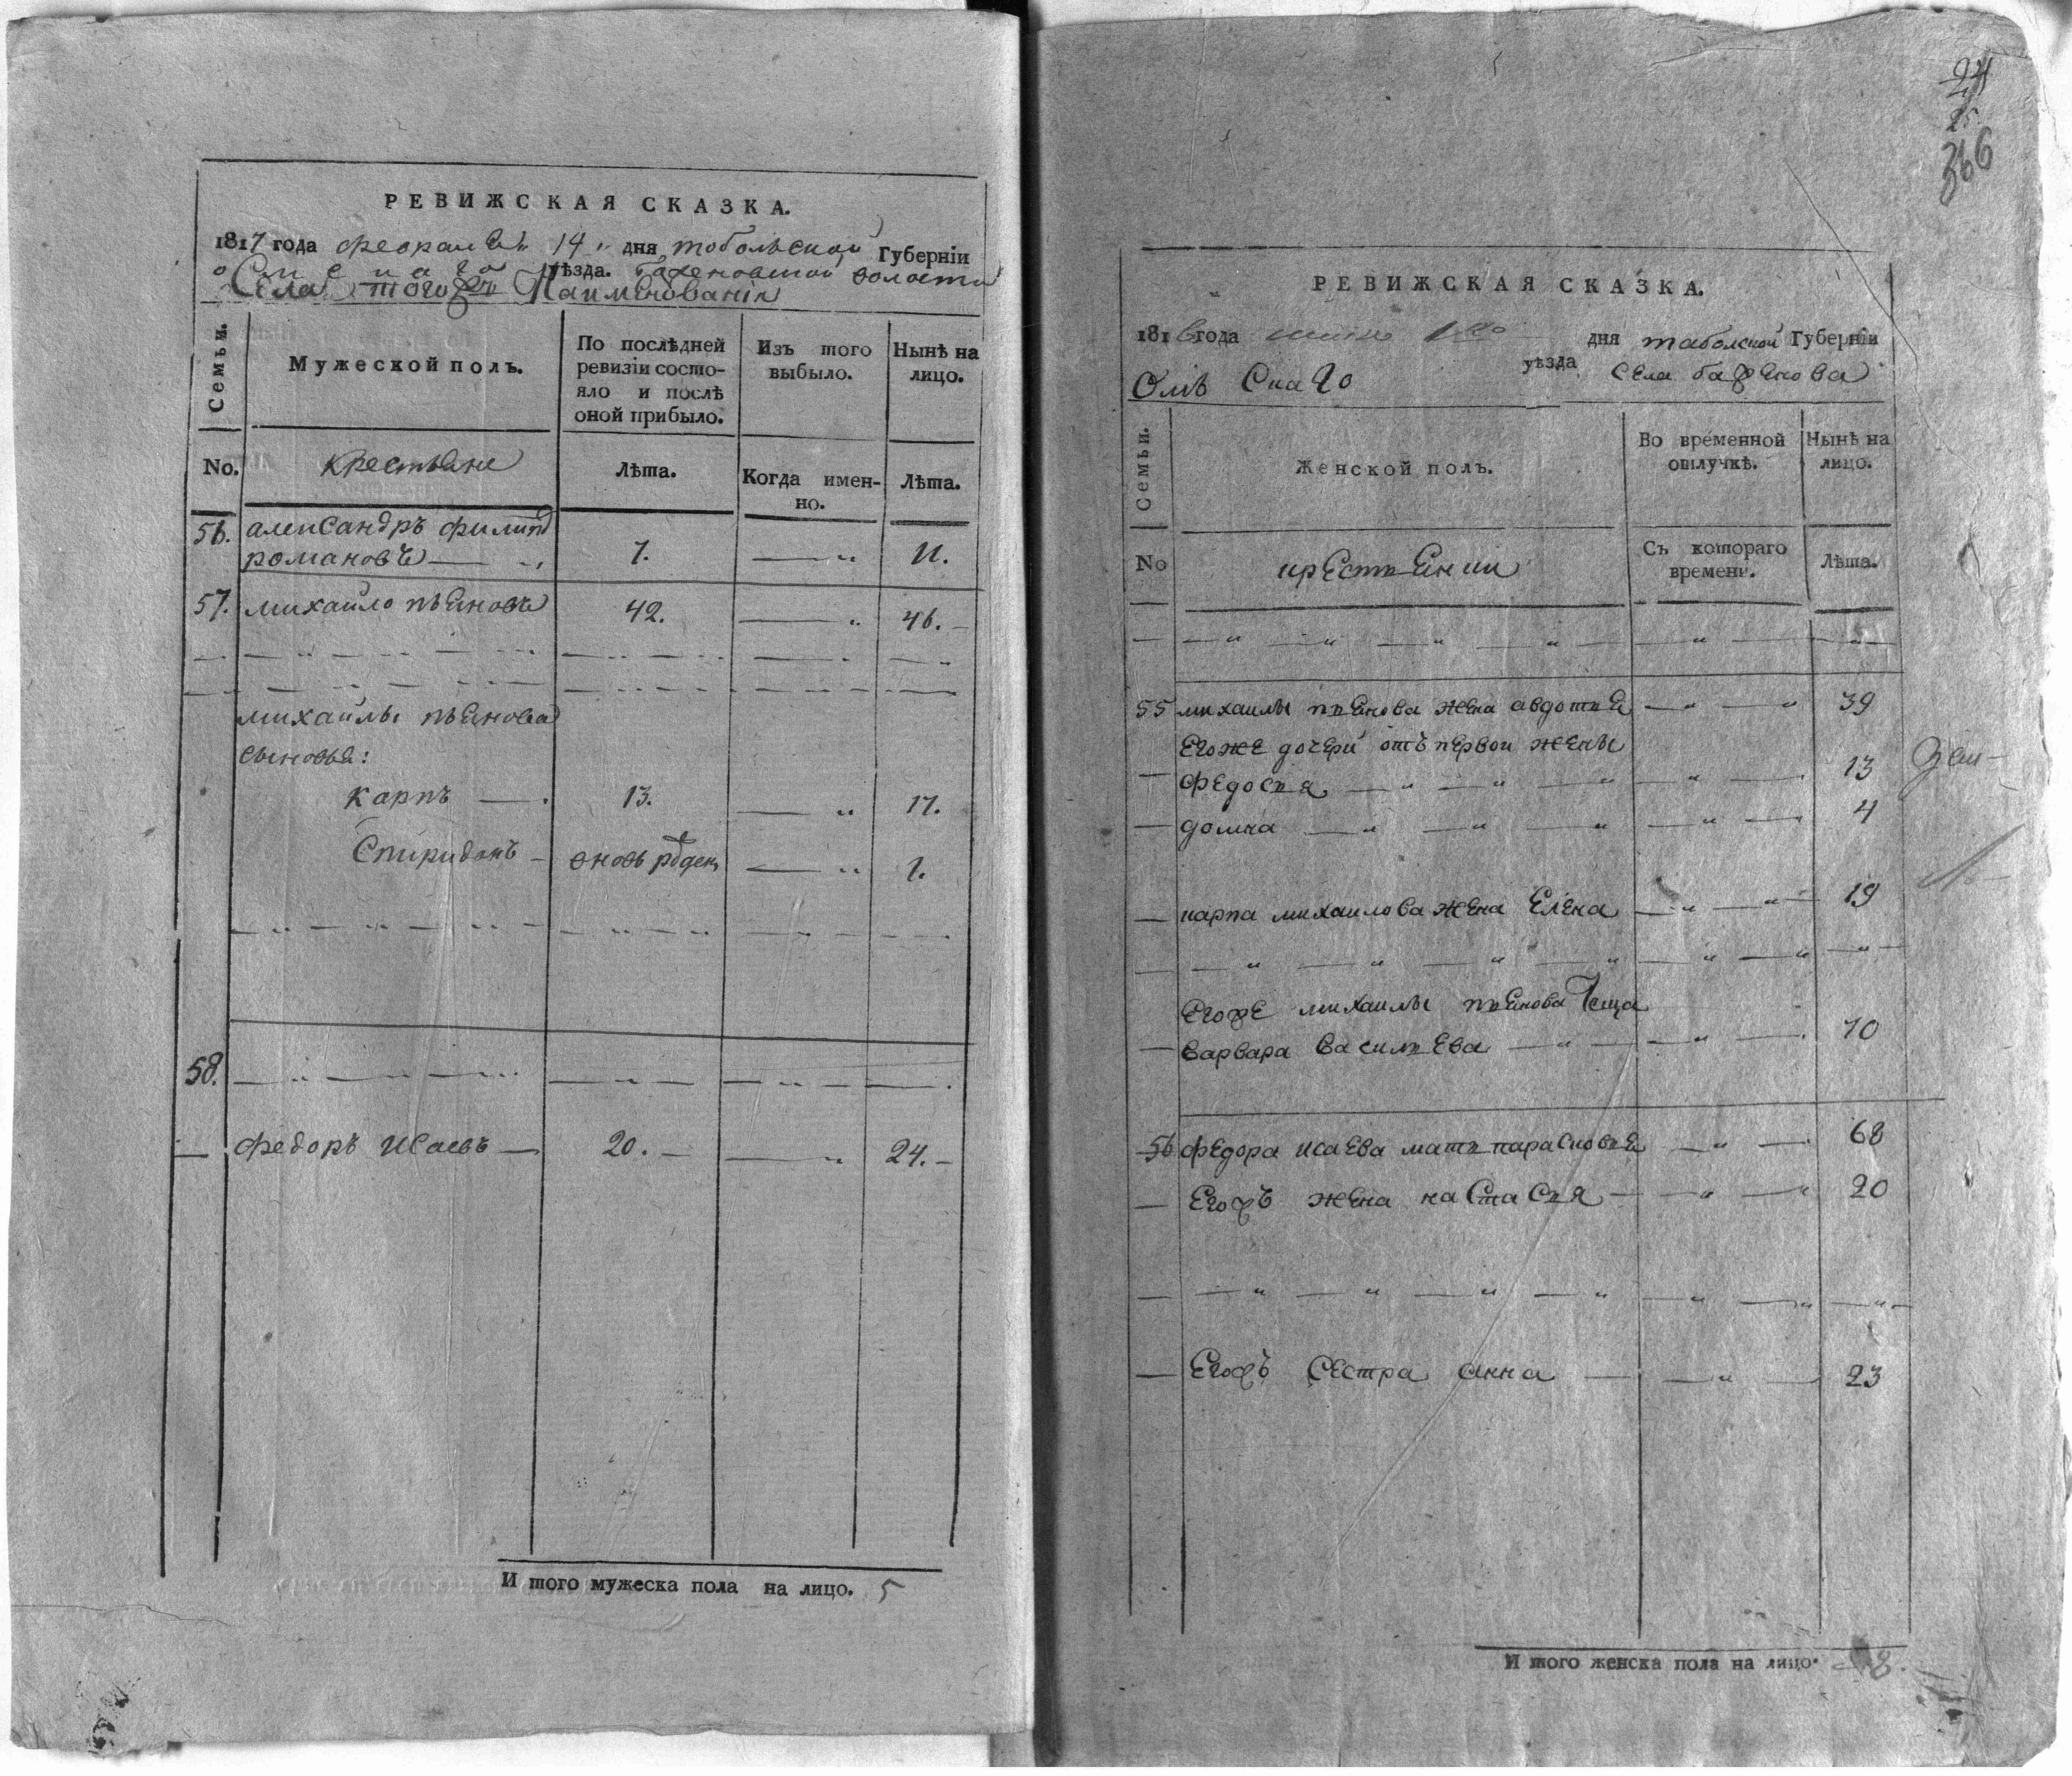 РЕВИЖСКАЯ СКАЗКА.
1817 года февраля 14 дня тобольской Губерніи
Омскаго уѣзда. Баженовской волости
Села того же Наименованія
Семьи.
Мужеской полъ.
По послѣдней ревизіи состояло и послѣ оной прибыло.
Изъ того выбыло.
Нынѣ на лицо.
No.
крестьяне
Лѣта.
Когда именно.
Лѣта.
56. александръ филипо
романовъ — 7. — " 11.
57. михайло пьяновъ 42. — " 46. —
михайлы пьянова
сыновья:
карпъ — 13. — " 17.
Спиридонъ — вновь рожден — " 1.
58.
— федоръ исаевъ — 20. — — " 24. —
И того мужеска пола на лицо. 5
366
РЕВИЖСКАЯ СКАЗКА.
1816 года дня тобольской Губерніи
Омскаго уѣзда села баженова
Семьи.
Женской полъ.
Во временной отлучкѣ.
Нынѣ на лицо.
No
крестьянки
Съ котораго времени.
Лѣта.
55 михаилы пьянова жена авдотья — " — " 39
Егоже дочери отъ первои жены
— федосья — " — " — " — " — 13
— домна — " — " — " — " — 4
— карпа михаилова жена Елена — " — " 19
Егоже михаилы пьянова теща
— варвара васильева — " — — " — 70
56 федора исаева мать парасковья — " — 68
— Егожъ жена настасья — — " — " 20
— Егожъ сестра анна — — " — 23
И того женска пола на лицо. 8.